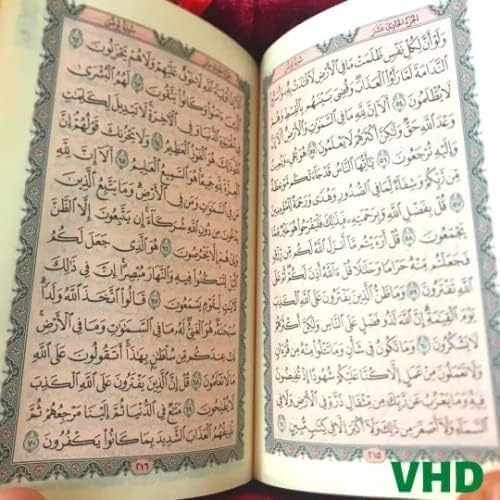 الجُزءُ الحَادِي عَشَرَ
سُورَةُ يُونُسَ
وَلَوْ أَنَّ لِكُلِّ نَفْسٍ ظَلَمَتْ مَا فِي ٱلْأَرْضِ لَٱفْتَدَتْ بِهِۦ وَأَسَرُّوا۟
ٱلنَّدَامَةَ لَمَّا رَأَوُا۟ ٱلْعَذَابَ وَقُضِيَ بَيْنَهُم بِٱلْقِسْطِ وَهُمْ
لَا يُظْلَمُونَ ٥٤ أَلَآ إِنَّ لِلَّهِ مَا فِي ٱلسَّمَٰوَٰتِ وَٱلْأَرْضِ أَلَآ إِنَّ
وَعْدَ ٱللَّهِ حَقٌّ وَلَٰكِنَّ أَكْثَرَهُمْ لَا يَعْلَمُونَ ٥٥ هُوَ يُحْيِۦ وَيُمِيتُ
وَإِلَيْهِ تُرْجَعُونَ ٥٦ يَٰٓأَيُّهَا ٱلنَّاسُ قَدْ جَآءَتْكُم مَّوْعِظَةٌ
مِّن رَّبِّكُمْ وَشِفَآءٌ لِّمَا فِي ٱلصُّدُورِ وَهُدًى وَرَحْمَةٌ لِّلْمُؤْمِنِينَ
٥٧ قُلْ بِفَضْلِ ٱللَّهِ وَبِرَحْمَتِهِۦ فَبِذَٰلِكَ فَلْيَفْرَحُوا۟ هُوَ خَيْرٌ مِّمَّا
يَجْمَعُونَ ٥٨ قُلْ أَرَءَيْتُم مَّآ أَنزَلَ ٱللَّهُ لَكُم مِّن رِّزْقٍ
فَجَعَلْتُم مِّنْهُ حَرَامًا وَحَلَٰلًا قُلْ ءَآللَّهُ أَذِنَ لَكُمْ أَمْ عَلَى
ٱللَّهِ تَفْتَرُونَ ٥٩ وَمَا ظَنُّ ٱلَّذِينَ يَفْتَرُونَ عَلَى ٱللَّهِ ٱلْكَذِبَ
يَوْمَ ٱلْقِيَٰمَةِ إِنَّ ٱللَّهَ لَذُو فَضْلٍ عَلَى ٱلنَّاسِ وَلَٰكِنَّ أَكْثَرَهُمْ
لَا يَشْكُرُونَ ٦٠ وَمَا تَكُونُ فِي شَأْنٍ وَمَا تَتْلُوا۟ مِنْهُ مِن قُرْءَانٍ
وَلَا تَعْمَلُونَ مِنْ عَمَلٍ إِلَّا كُنَّا عَلَيْكُمْ شُهُودًا إِذْ تُفِيضُونَ
فِيهِ وَمَا يَعْزُبُ عَن رَّبِّكَ مِن مِّثْقَالِ ذَرَّةٍ فِي ٱلْأَرْضِ وَلَا فِي
ٱلسَّمَآءِ وَلَآ أَصْغَرَ مِن ذَٰلِكَ وَلَآ أَكْبَرَ إِلَّا فِي كِتَٰبٍ مُّبِينٍ ٦١
٢١٥
سُورَةُ يُونُسَ
أَلَآ إِنَّ أَوْلِيَآءَ ٱللَّهِ لَا خَوْفٌ عَلَيْهِمْ وَلَا هُمْ يَحْزَنُونَ
٦٢ ٱلَّذِينَ ءَامَنُوا۟ وَكَانُوا۟ يَتَّقُونَ ٦٣ لَهُمُ ٱلْبُشْرَىٰ
فِي ٱلْحَيَوٰةِ ٱلدُّنْيَا وَفِي ٱلْءَاخِرَةِ لَا تَبْدِيلَ لِكَلِمَٰتِ
ٱللَّهِ ذَٰلِكَ هُوَ ٱلْفَوْزُ ٱلْعَظِيمُ ٦٤ وَلَا يَحْزُنكَ قَوْلُهُمْ إِنَّ
ٱلْعِزَّةَ لِلَّهِ جَمِيعًا هُوَ ٱلسَّمِيعُ ٱلْعَلِيمُ ٦٥ أَلَآ إِنَّ لِلَّهِ
مَن فِي ٱلسَّمَٰوَٰتِ وَمَن فِي ٱلْأَرْضِ وَمَا يَتَّبِعُ ٱلَّذِينَ
يَدْعُونَ مِن دُونِ ٱللَّهِ شُرَكَآءَ إِن يَتَّبِعُونَ إِلَّا ٱلظَّنَّ
وَإِنْ هُمْ إِلَّا يَخْرُصُونَ ٦٦ هُوَ ٱلَّذِي جَعَلَ لَكُمُ
ٱلَّيْلَ لِتَسْكُنُوا۟ فِيهِ وَٱلنَّهَارَ مُبْصِرًا إِنَّ فِي ذَٰلِكَ
لَءَايَٰتٍ لِّقَوْمٍ يَسْمَعُونَ ٦٧ قَالُوا۟ ٱتَّخَذَ ٱللَّهُ وَلَدًا
سُبْحَٰنَهُۥ هُوَ ٱلْغَنِيُّ لَهُۥ مَا فِي ٱلسَّمَٰوَٰتِ وَمَا فِي ٱلْأَرْضِ
إِنْ عِندَكُم مِّن سُلْطَٰنٍۭ بِهَٰذَآ أَتَقُولُونَ عَلَى ٱللَّهِ
مَا لَا تَعْلَمُونَ ٦٨ قُلْ إِنَّ ٱلَّذِينَ يَفْتَرُونَ عَلَى ٱللَّهِ ٱلْكَذِبَ
لَا يُفْلِحُونَ ٦٩ مَتَٰعٌ فِي ٱلدُّنْيَا ثُمَّ إِلَيْنَا مَرْجِعُهُمْ ثُمَّ
نُذِيقُهُمُ ٱلْعَذَابَ ٱلشَّدِيدَ بِمَا كَانُوا۟ يَكْفُرُونَ ٧٠
٢١٦
VHD